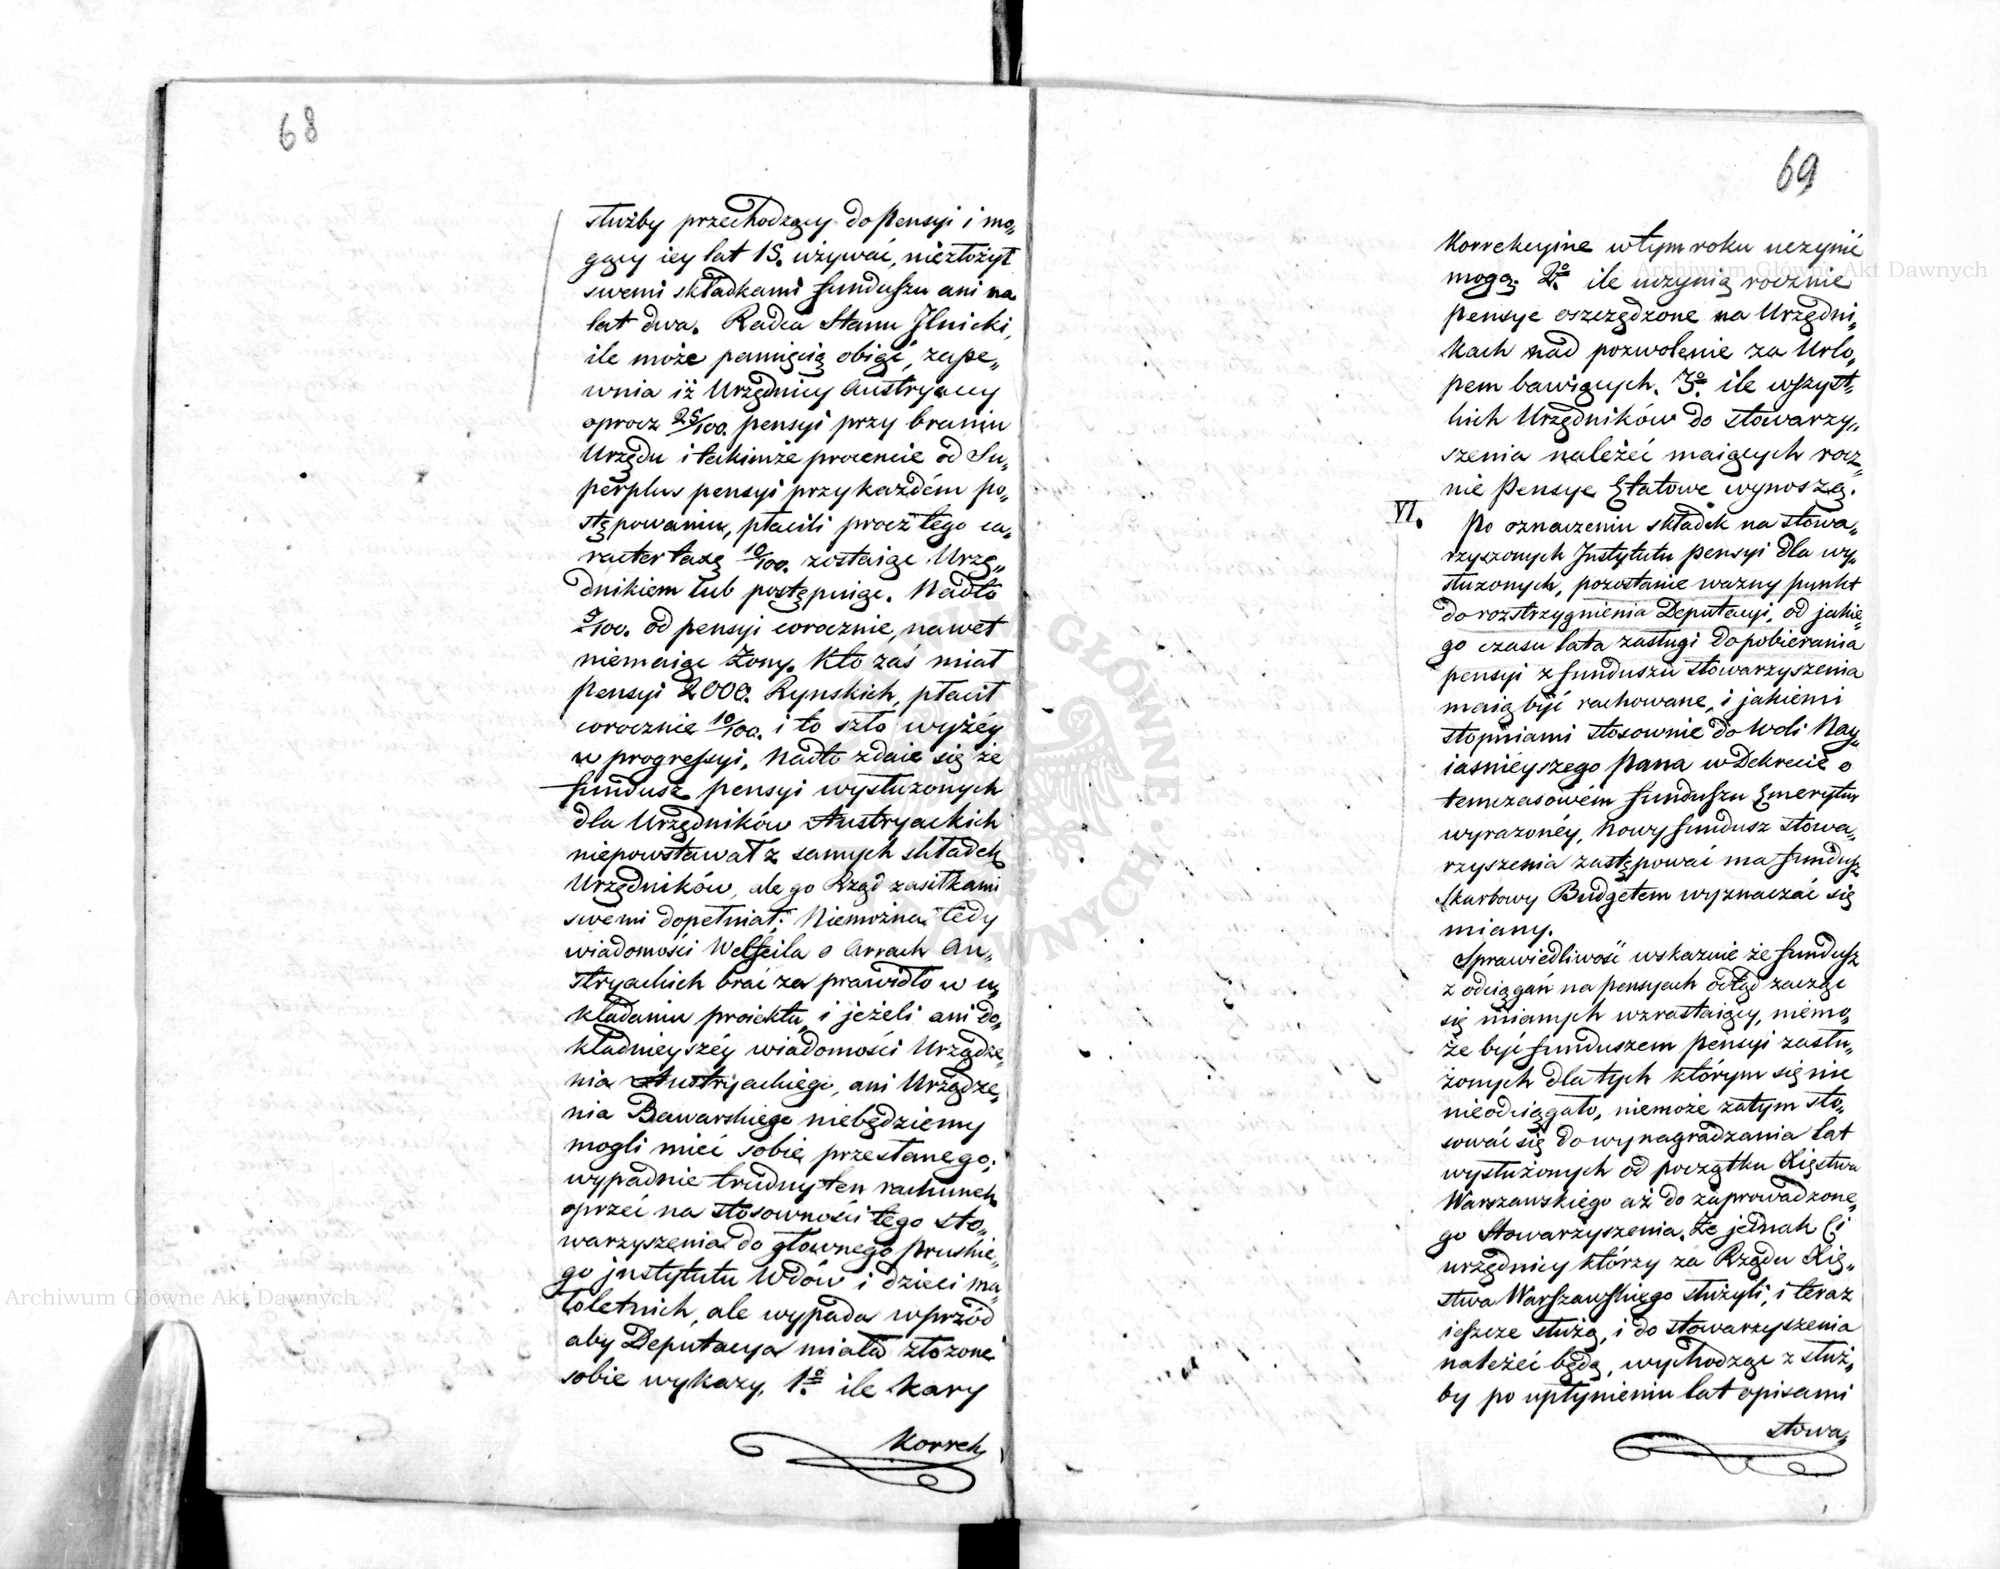 68
służby przechodzący do Pensyi i mo„
gący iey lat 15. używać, niezłożył
swemi składkami funduszu ani na
lat dwa. Radca Stanu Ilnicki,
ile może pamięcią obiąć, zape„
wnia iż Urzędnicy Austryaccy
oprocz 25/100. pensyi przy braniu
Urzędu i takimże procencie od Su„
perplus pensyi przy każdém po„
stępowaniu, płacili procz tego ca„
racter taxę 10/100. zostaiąc Urzę„
dnikiem lub postępuiąc. Nadto
5/100. od pensyi corocznie, nawet
niemaiąc Żony. Kto zaś miał
Pensyi 2000. Rynskich, płacił
corocznie 10/100. i to szło wyżéy
w progressyi, Nadto zdaie się że
fundusz pensyi wysłużonych
dla Urzędników Austryackich
niepowstawał z samych składek
Urzędników, ale go Rząd zasiłkami
swemi dopełniał; Niemożna tedy
wiadomości o Au„
stryackich brać za prawidło w u„
kładaniu proiektu, i jeżeli ani do„
kładnieyszéy wiadomości Urządze„
nia Austryackiego, ani Urządze„
nia Bawarskiego niebędziemy
mogli mieć sobie przesłanego;
wypadnie trudny ten rachunek
oprzeć na stosowności tego sto„
warzyszenia do głównego Pruskie„
go jnstytutu Wdów i dzieci ma„
łoletnich, ale wypada wprzód
aby Deputacya miała złożone
sobie wykazy, 1º ile kary
Korrek„
69
Korrekcyine w tym roku uczynić
mogą. 2º ile uczynią rocznie
Pensye oszczędzone na Urzędni„
kach nad pozwolenie za Urlo„
pem bawiących. 3º ile wszyst„
kich Urzędników do stowarzy„
szenia należeć maiących rocz„
nie Pensye Etatowe wynoszą.
VI. Po oznaczeniu składek na stowa„
rzyszonych Jnstytutu Pensyi dla wy„
służonych, pozostanie ważny punkt
do rozstrzygnienia Deputacyi, od jakie„
go czasu lata zasługi do pobierania
pensyi z funduszu stowarzyszenia
maią być rachowane, i jakiemi
stopniami stosownie do Woli Nay„
iaśnieyszego Pana w Dekrecie o
temczasowém funduszu Emerytur
wyrażonéy, Nowy fundusz stowa„
rzyszenia zastępować ma fundusz
Skarbowy Budgetem wyznaczać się
miany.
Sprawiedliwość wskazuie że fundusz
z odciągań na pensyach odtąd zacząć
się mianych wzrastaiący, niemo„
że być funduszem pensyi zasłu„
żonych dla tych którym się nic
nieodciągało, niemoże zatym sto„
sować się do wynagradzania lat
wysłużonych od początku Xięstwa
Warszawskiego aż do zaprowadzone„
go Stowarzyszenia. Że jednak Ci
urzędnicy którzy za Rządu Xię„
stwa Warszawskiego służyli, i teraz
ieszcze służą, i do stowarzyszenia
należeć będą, wychodząc z służ„
by po upłynieniu lat opisami
stowa„
Archiwum Główne Akt Dawnych
Archiwum Główne Akt Dawnych